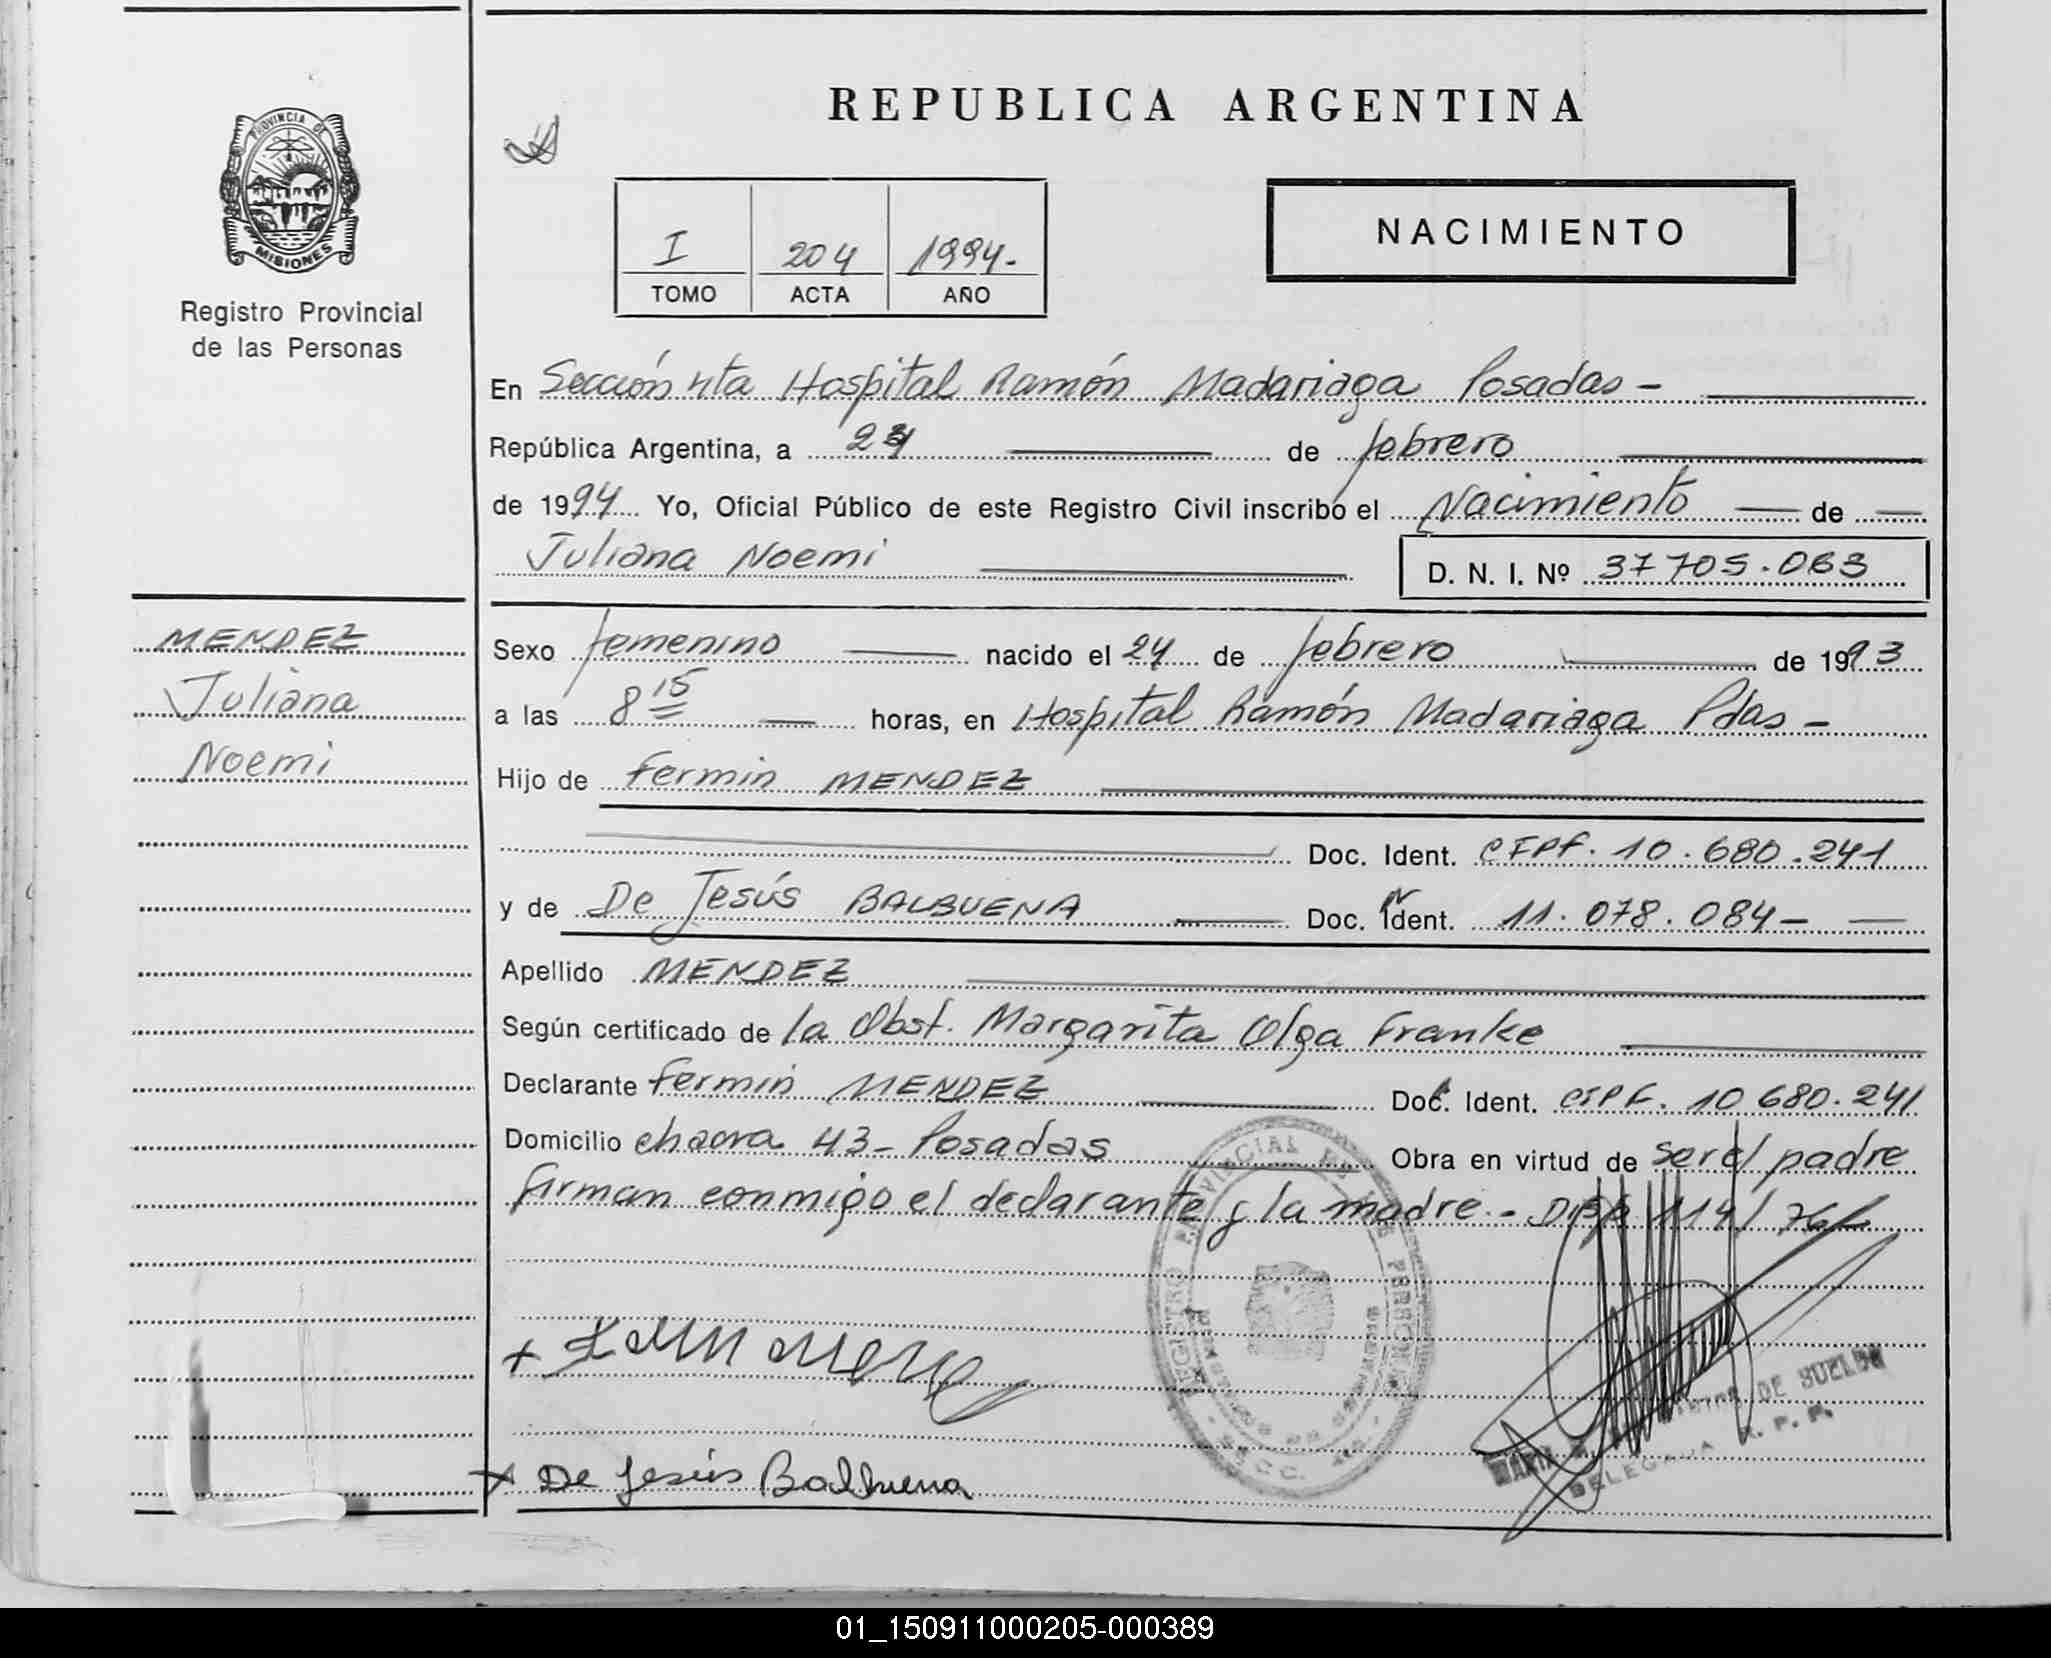 REPUBLICA ARGENTINA
PROVINCIA DE
MISIONES
Registro Provincial
de las Personas
I 204 1994.-
TOMO ACTA AÑO
NACIMIENTO
En Sección 4ta Hospital Ramón Madariaga Posadas -
República Argentina, a 24 de febrero
de 1994 Yo, Oficial Público de este Registro Civil inscribo el Nacimiento de
Juliana Noemi D. N. I. Nº 37705.063
MENDEZ
Juliana
Noemi
Sexo femenino nacido el 24 de febrero de 1993
a las 8 15 horas, en Hospital Ramón Madariaga Pdas -
Hijo de Fermin MENDEZ
Doc. Ident. CIPF. 10.680.241
y de De Jesús BALBUENA Doc. Ident. 11.078.084 -
Apellido MENDEZ
Según certificado de la Obst. Margarita Olga Franke
Declarante Fermin MENDEZ Doc. Ident. CIPF. 10680.241
Domicilio chacra 43 - Posadas Obra en virtud de ser el padre
firman conmigo el declarante y la madre. - Disp 114/76
REGISTRO PROVINCIAL DE LAS PERSONAS
DE SUELDO
DELEGADA R. P. P.
x De Jesús Balbuena
01_150911000205-000389